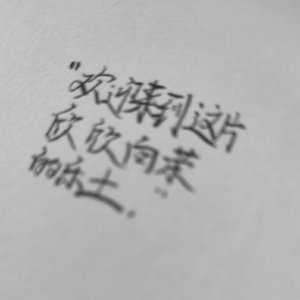 "欢迎来到这片
欣欣向荣
的乐土"。